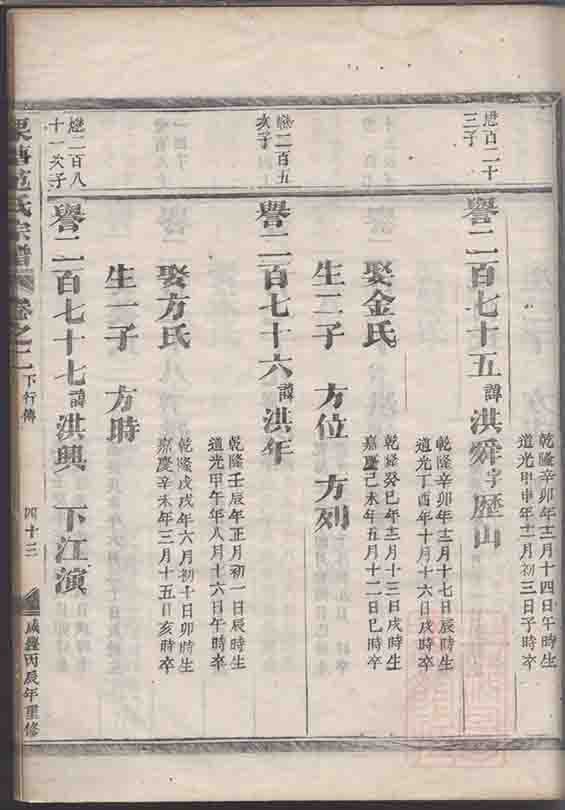 懋百二十
三子
譽二百七十五諱洪舜字歷山
乾隆辛卯年十二月十四日午時生
道光甲申年十二月初三日子時卒
娶金氏
乾隆辛卯年十二月十七日辰時生
道光丁酉年十月十六日戌時卒
生二子 方位 方列
乾隆癸巳年十二月十三日戌時生
嘉慶己未年五月十二日巳時卒
懋二百五
次子
譽二百七十六諱洪年
乾隆壬辰年正月初一日辰時生
道光甲午年八月十六日午時卒
娶方氏
乾隆戊戌年六月初十日卯時生
嘉慶辛未年三月十五日亥時卒
生一子 方時
懋二百八
十一次子
譽二百七十七諱洪興 下江演
氏宗譜 卷之二 下行傳 四十三 咸豐丙辰年重修